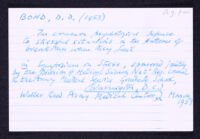 BOND, D. D. (1953)
The common psychological defense
to stressful situations in the patterns of
breakdown when they fail
in Symposium on Stress, sponsored jointly
by the Division of Medical Sciences Nat. Res. Council
& Army Medical Service Graduate School
Washington, D.C.
Walter Reed Army Medical Center
March 1953